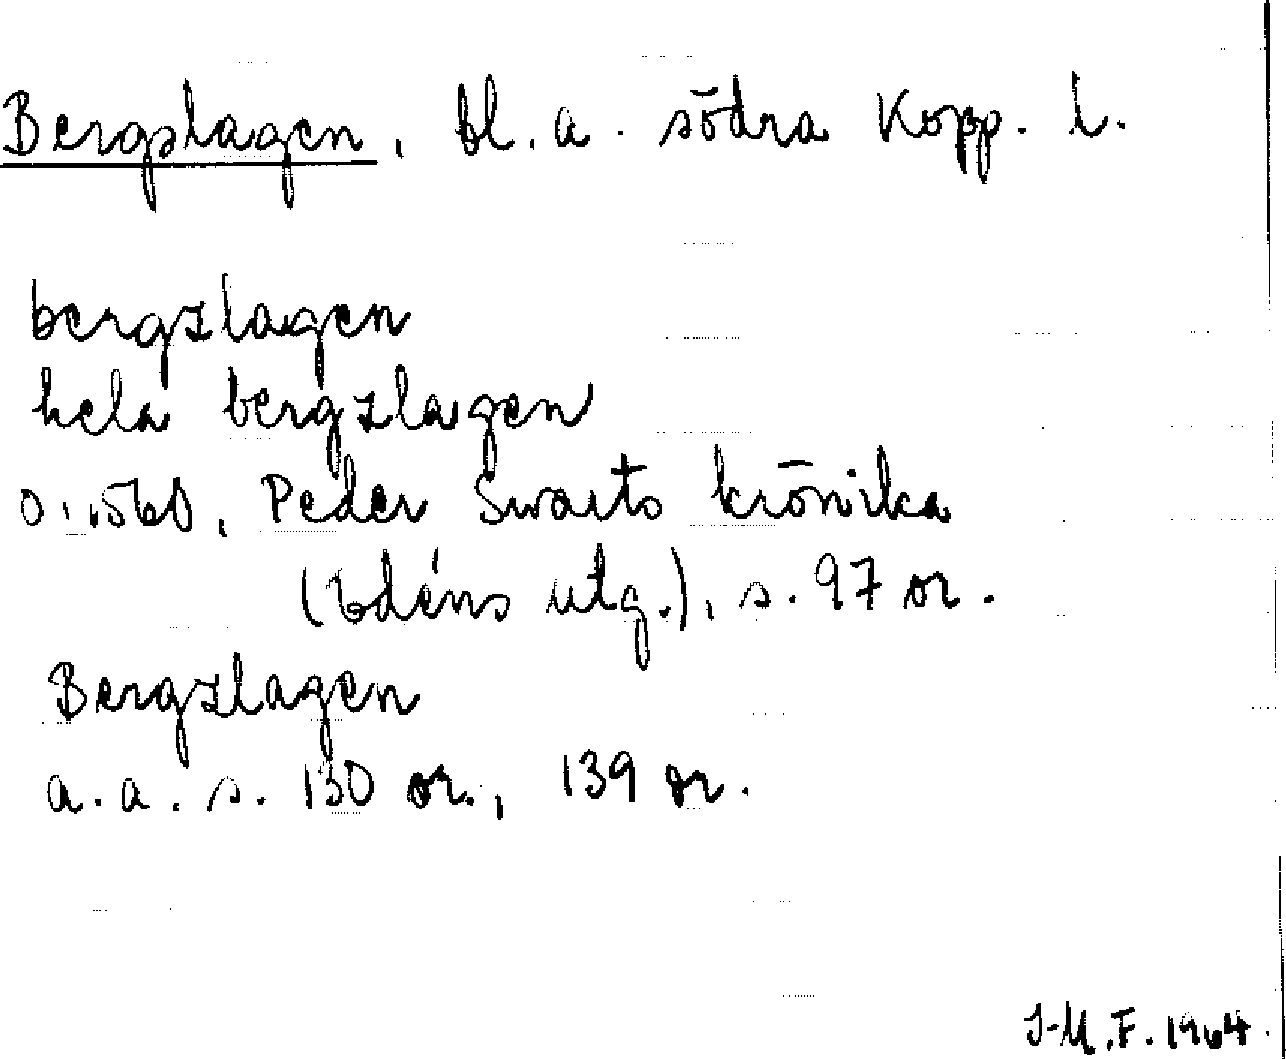 Bergslagen, bl.a. södra Kopp. l.
bergzlagen
hela bergzlagen
o. 1560, Peder Swarts krönika
(Edéns utg.), s. 97 or.
Bergzlagen
a.a. s. 130 or., 139 or.
I-M.F. 1964.